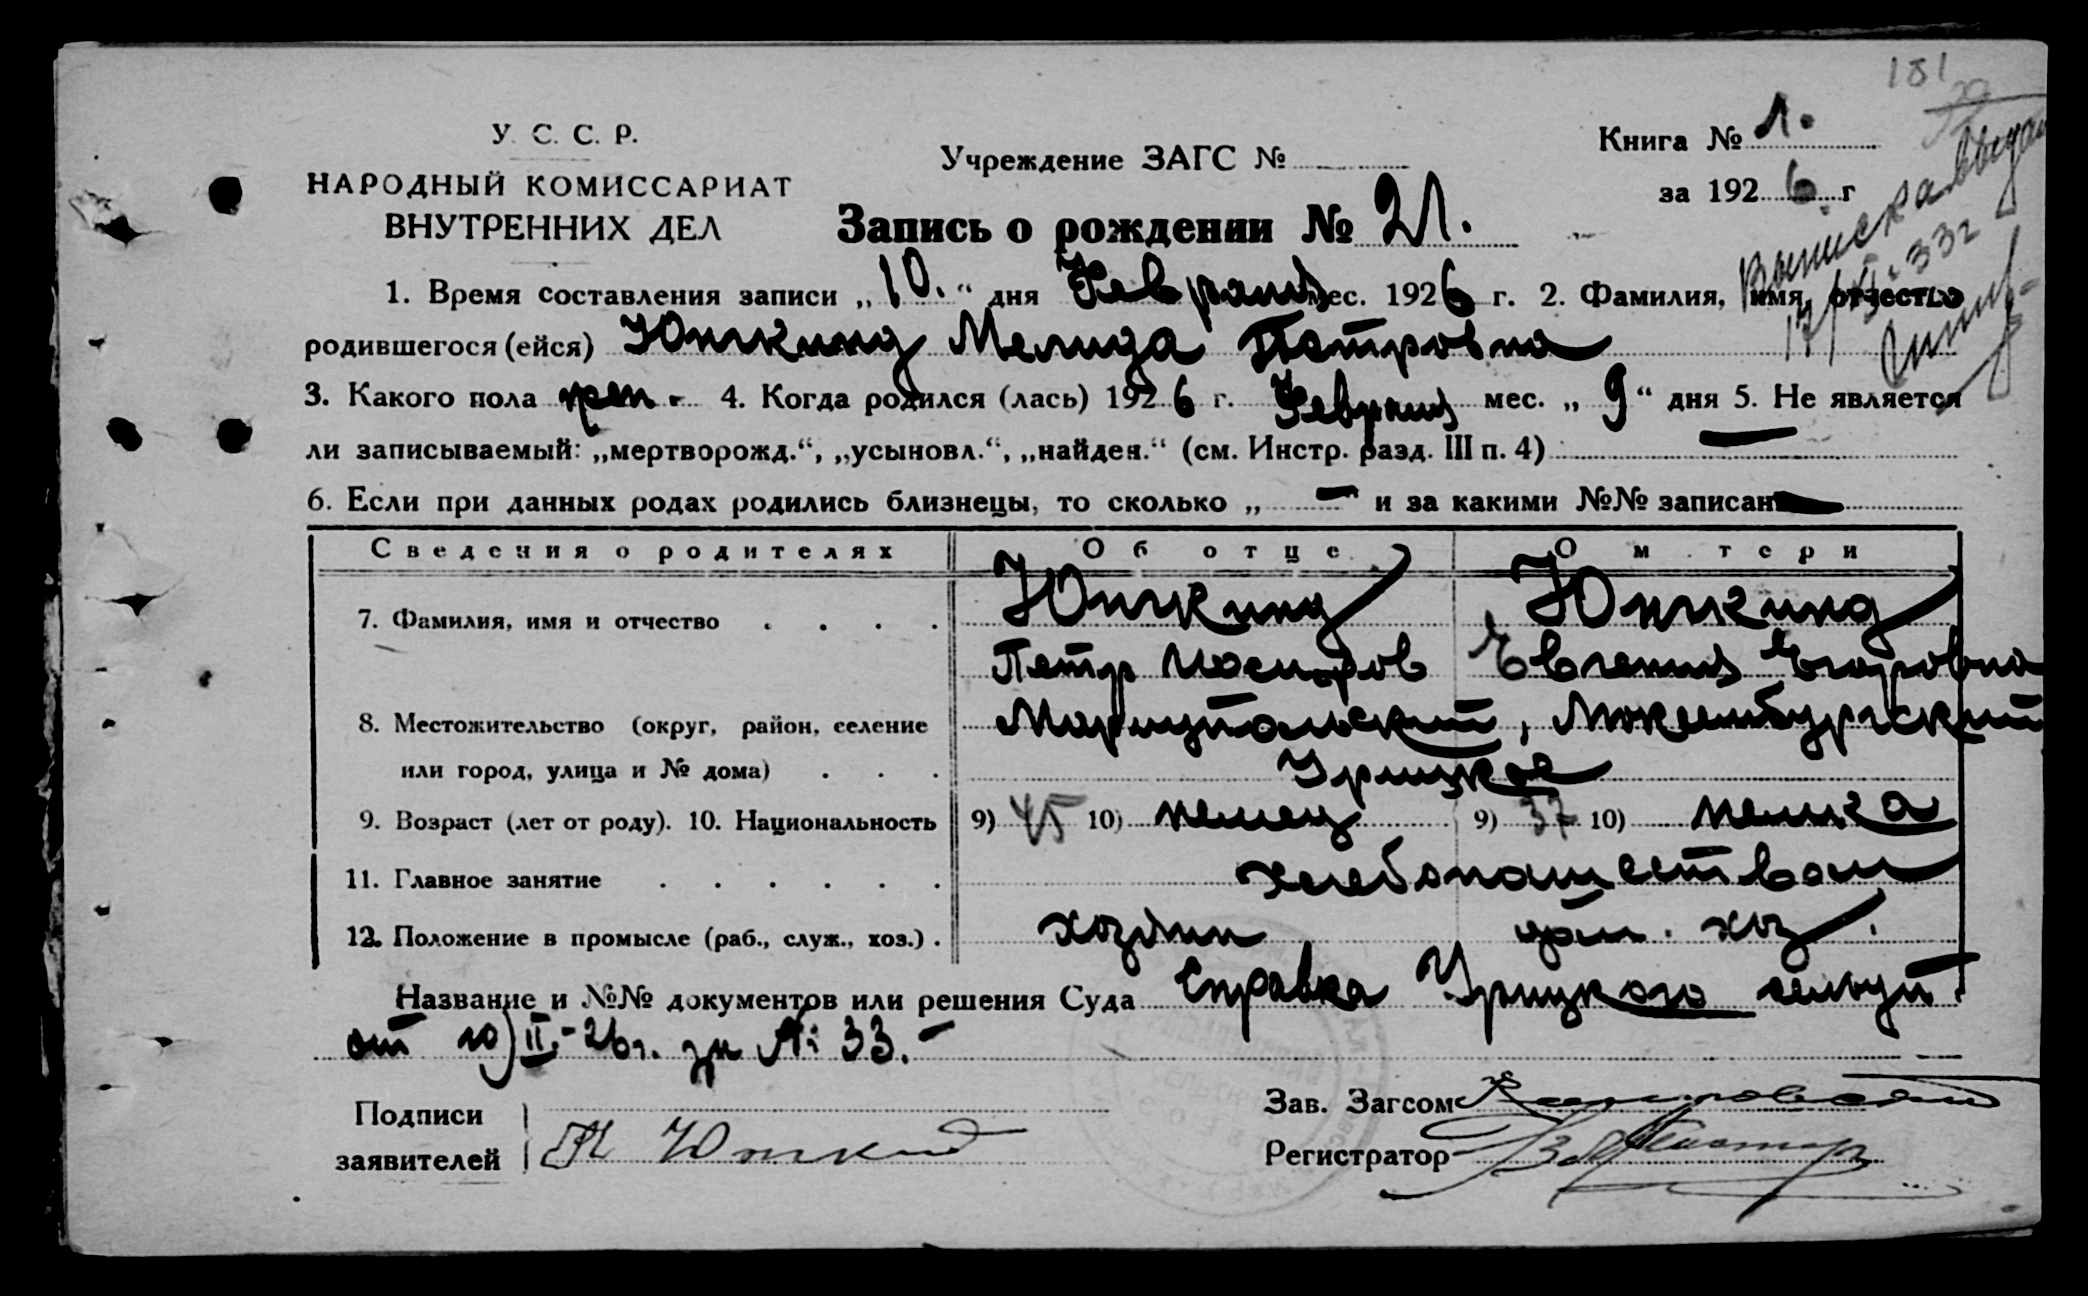 181
У. С. С. Р.
НАРОДНЫЙ КОМИССАРИАТ
ВНУТРЕННИХ ДЕЛ
Учреждение ЗАГС №
Книга № 1.
за 1926 г
Выписка выдан
17/XI 33г
Запись о рождении № 21.
1. Время составления записи „10.“ дня Февраля мес. 1926 г. 2. Фамилия, имя, отчество
родившегося (ейся) Юнкинд Мелида Петровна
3. Какого пола жен. 4. Когда родился (лась) 1926 г. Февраля мес. „9“ дня 5. Не является
ли записываемый: „мертворожд.“, „усыновл.“, „найден.“ (см. Инстр. разд. III п. 4) —
6. Если при данных родах родились близнецы, то сколько „ — “ и за какими №№ записан —
Сведения о родителях Об отце О м тери
7. Фамилия, имя и отчество Юнкинд Юнкинд
Петр Иосифов Евгения Егоровна
8. Местожительство (округ, район, селение Мариупольский, Люксембургский
или город, улица и № дома) Урицкое
9. Возраст (лет от роду). 10. Национальность 9) 45 10) немец 9) 37 10) немка
11. Главное занятие хлебопашеством
12. Положение в промысле (раб., служ., хоз.) хозяин дом. хоз.
Название и №№ документов или решения Суда Справка Урицкого
от 10/II-26г. за №: 33. —
Подписи
заявителей П Юнкинд
Зав. Загсом
Регистратор